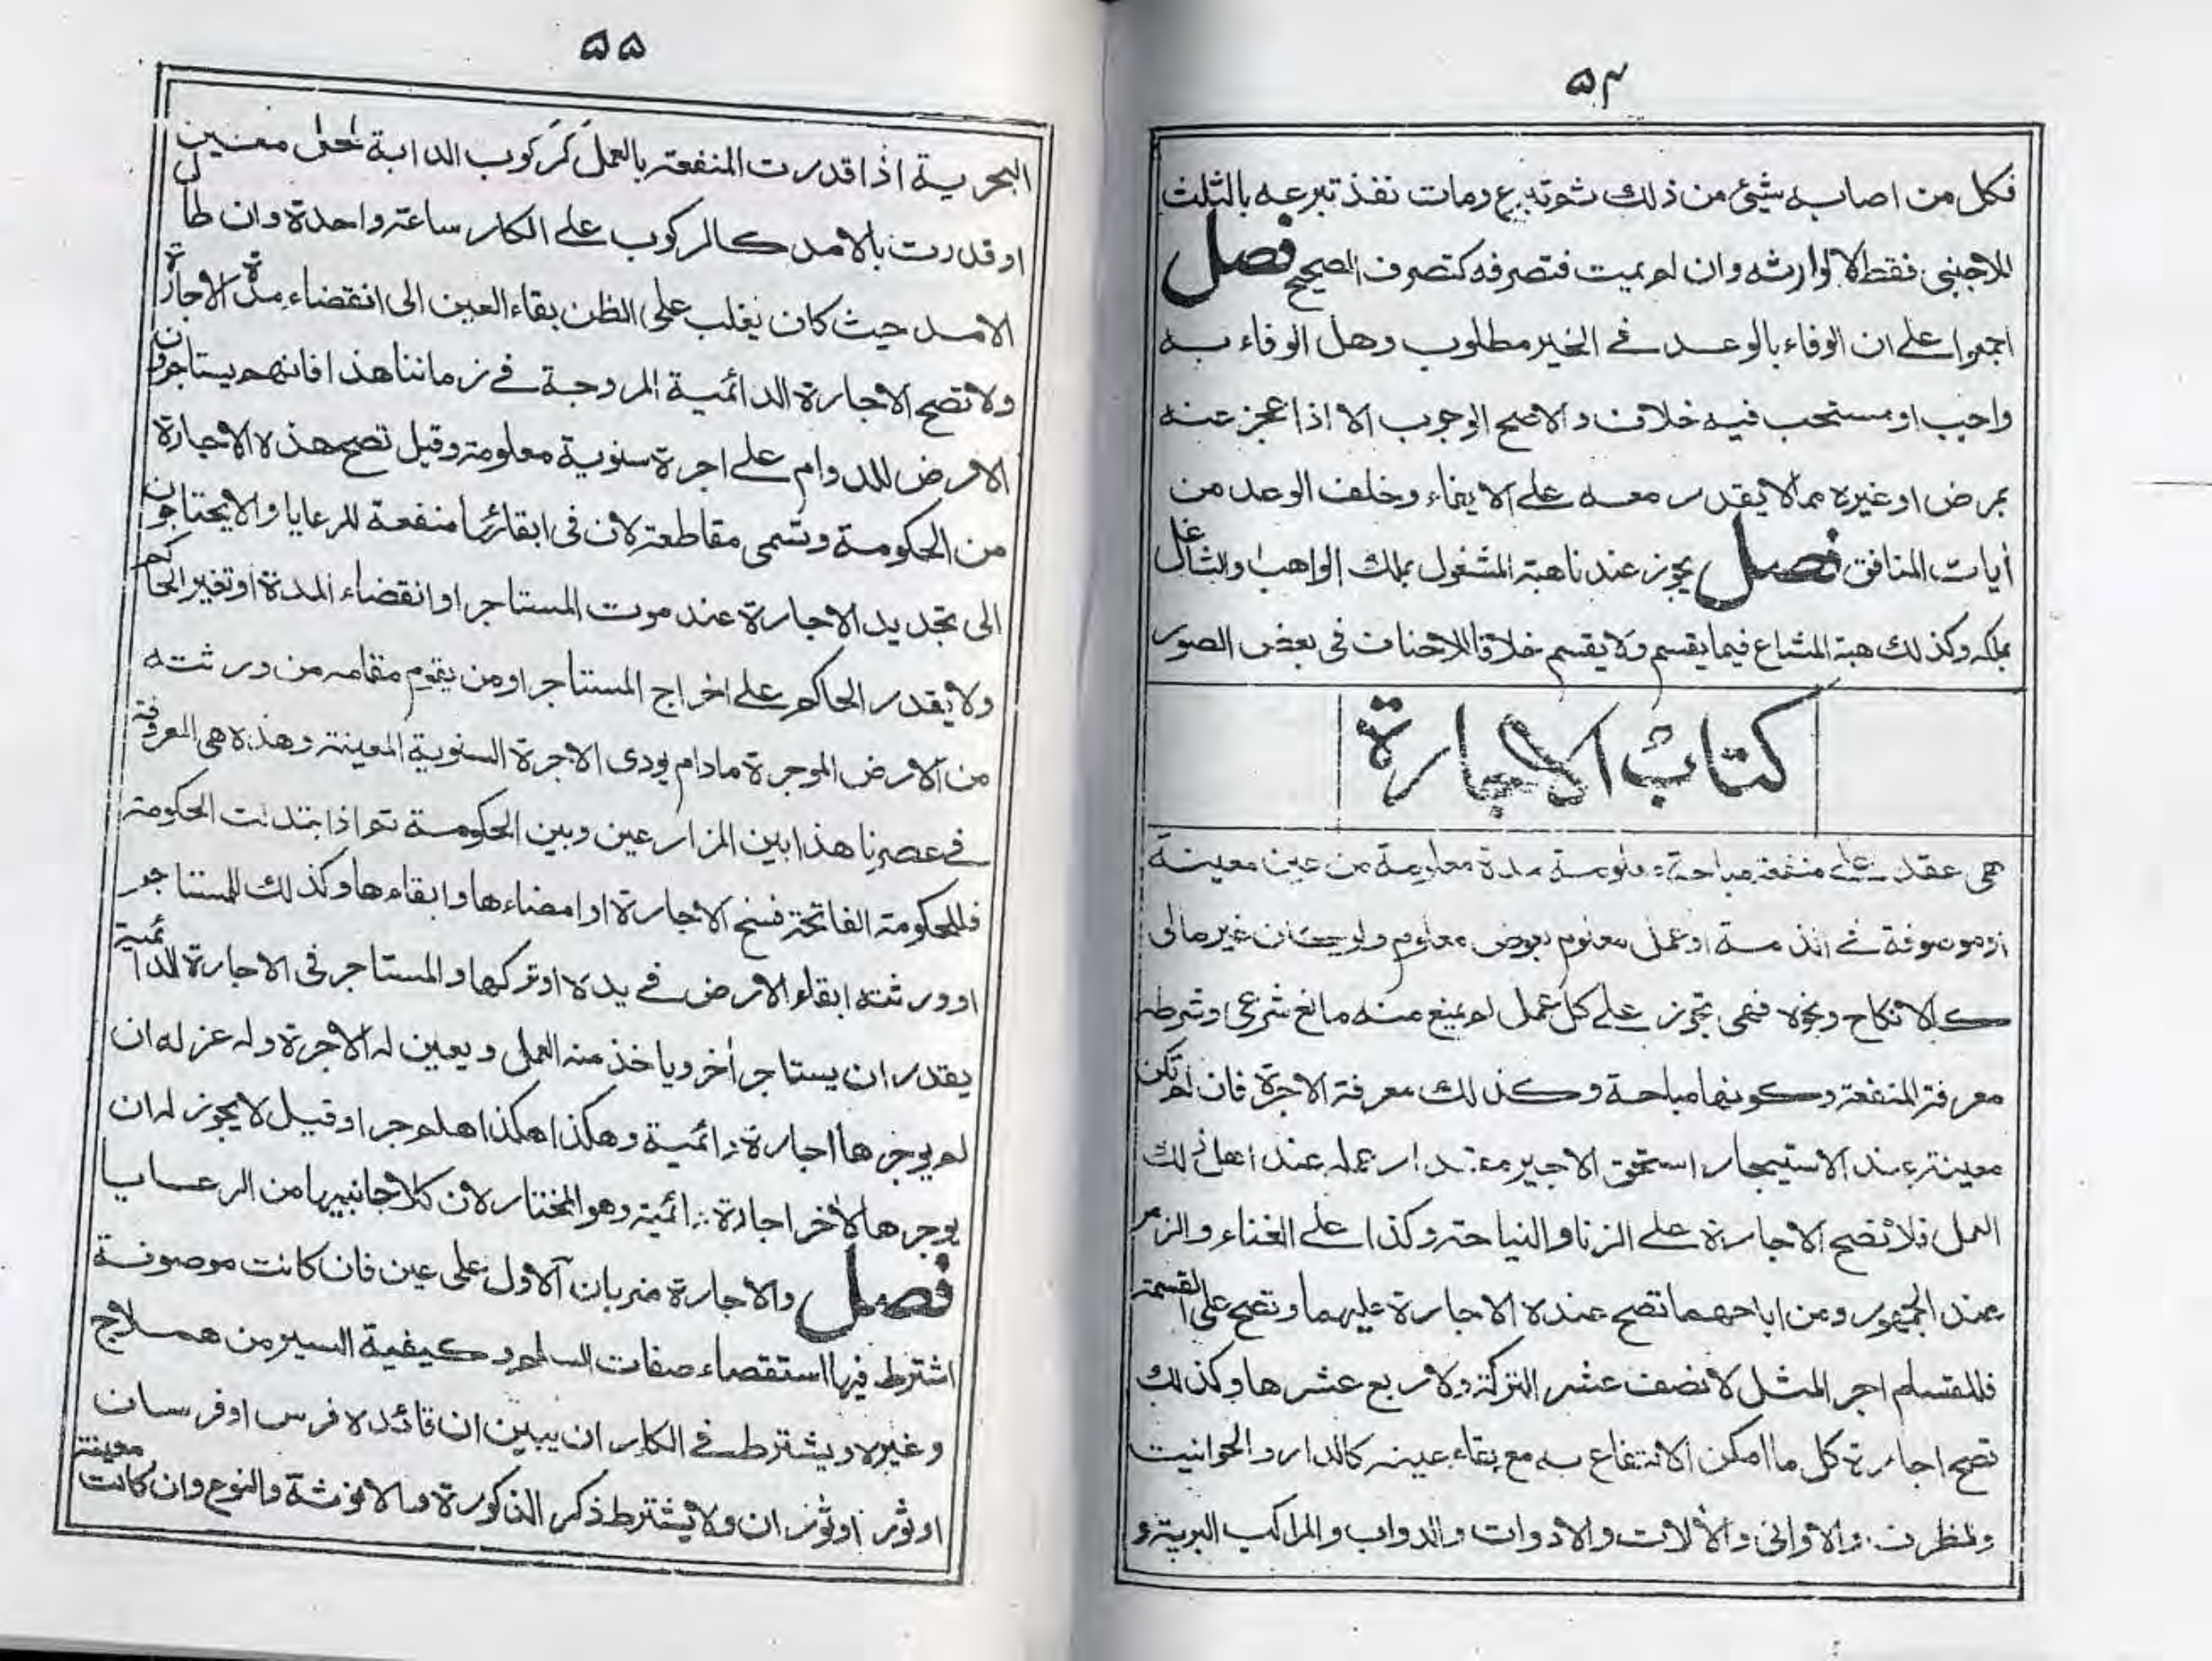 ۵۴
فكل من اصابه شيئ من ذلك ثم تبرع ومات نفذ تبرعه بالثلث
للاجنبى فقط لا لوارثه وان لم يمت فتصرفه كتصرف الصحيح فصل
اجمعوا على ان الوفاء بالوعد فى الخير مطلوب وهل الوفاء به
واجب او مستحب فيه خلاف والاصح الوجوب الا اذا عجز عنه
بمرض او غيره مما لا يقدر معه على الايفاء وخلف الوعد من
أيات المنافق فصل يجوز عندنا هبة المشغول بملك الواهب والشاغل
بملكه وكذلك هبة المشاع فيما يقسم ولا يقسم خلافا للاحناف فى بعض الصور
كتاب الاجارة
هى عقد على منفعة مباحة معلومة مدة معلومة من عين معينة
او موصوفة فى الذمة او عمل معلوم بعوض معلوم ولو كان غير مالى
كالانكاح ونحوه فهى تجوز على كل عمل لم يمنع منه مانع شرعى وشرطه
معرفة المنفعة وكونها مباحة وكذلك معرفة الاجرة فان لم تكن
معينة عند الاستيجار استحق الاجير مقدار عمله عند اهل ذلك
العمل فلا تصح الاجارة على الزنا والنياحة وكذا على الغناء والزمر
عند الجمهور ومن اباحهما تصح عنده الاجارة عليهما وتصح على القسمة
فللقسام اجر المثل لا نصف عشر التركة ولا ربع عشرها وكذلك
تصح اجارة كل ما امكن الانتفاع به مع بقاء عينه كالدار والحوانيت
والظرف والاوانى والألات والادوات والدواب والمراكب البرية و
۵۵
البحرية اذا قدرت المنفعة بالعمل كركوب الدابة لمحل معين
او قدرت بالامد كالركوب على الكار ساعة واحدة وان طال
الامد حيث كان يغلب على الظن بقاء العين الى انقضاء مدة الاجارة
ولا تصح الاجارة الدائمية المروجة فى زماننا هذا فانهم يستاجرون
الارض للدوام على اجرة سنوية معلومة وقيل تصح هذه الاجارة
من الحكومة وتسمى مقاطعة لان فى ابقائها منفعة للرعايا ولا يحتاجون
الى تجديد الاجارة عند موت المستاجر او انقضاء المدة او تغير الحاكم
ولا يقدر الحاكم على اخراج المستاجر او من يقوم مقامه من ورثته
من الارض الموجرة مادام يودى الاجرة السنوية المعينة وهذه هى المعروفة
فى عصرنا هذا بين المزارعين وبين الحكومة ثم اذا تبدلت الحكومة
فللحكومة الفاتحة فسخ الاجارة او امضاءها وابقاءها وكذلك للمستاجر
او ورثته ابقاء الارض فى يده او تركها والمستاجر فى الاجارة الدائمية
يقدر ان يستاجر أخر وياخذ منه العمل ويعين له الاجرة وله عزله ان
لم يوجرها اجارة دائمية وهكذا هكذا هلم جرا وقيل لا يجوز له ان
يوجرها لأخر اجارة دائمية وهو المختار لان كلا جانبيها من الرعايا
فصل والاجارة ضربان الاول على عين فان كانت موصوفة
اشترط فيها استقصاء صفات السلم وكيفية السير من هملاج
وغيره ويشترط فى الكار ان يبين ان قائده فرس او فرسان
او ثور او ثوران ولا يشترط ذكر الذكورة والانوثة والنوع وان كانت معينة